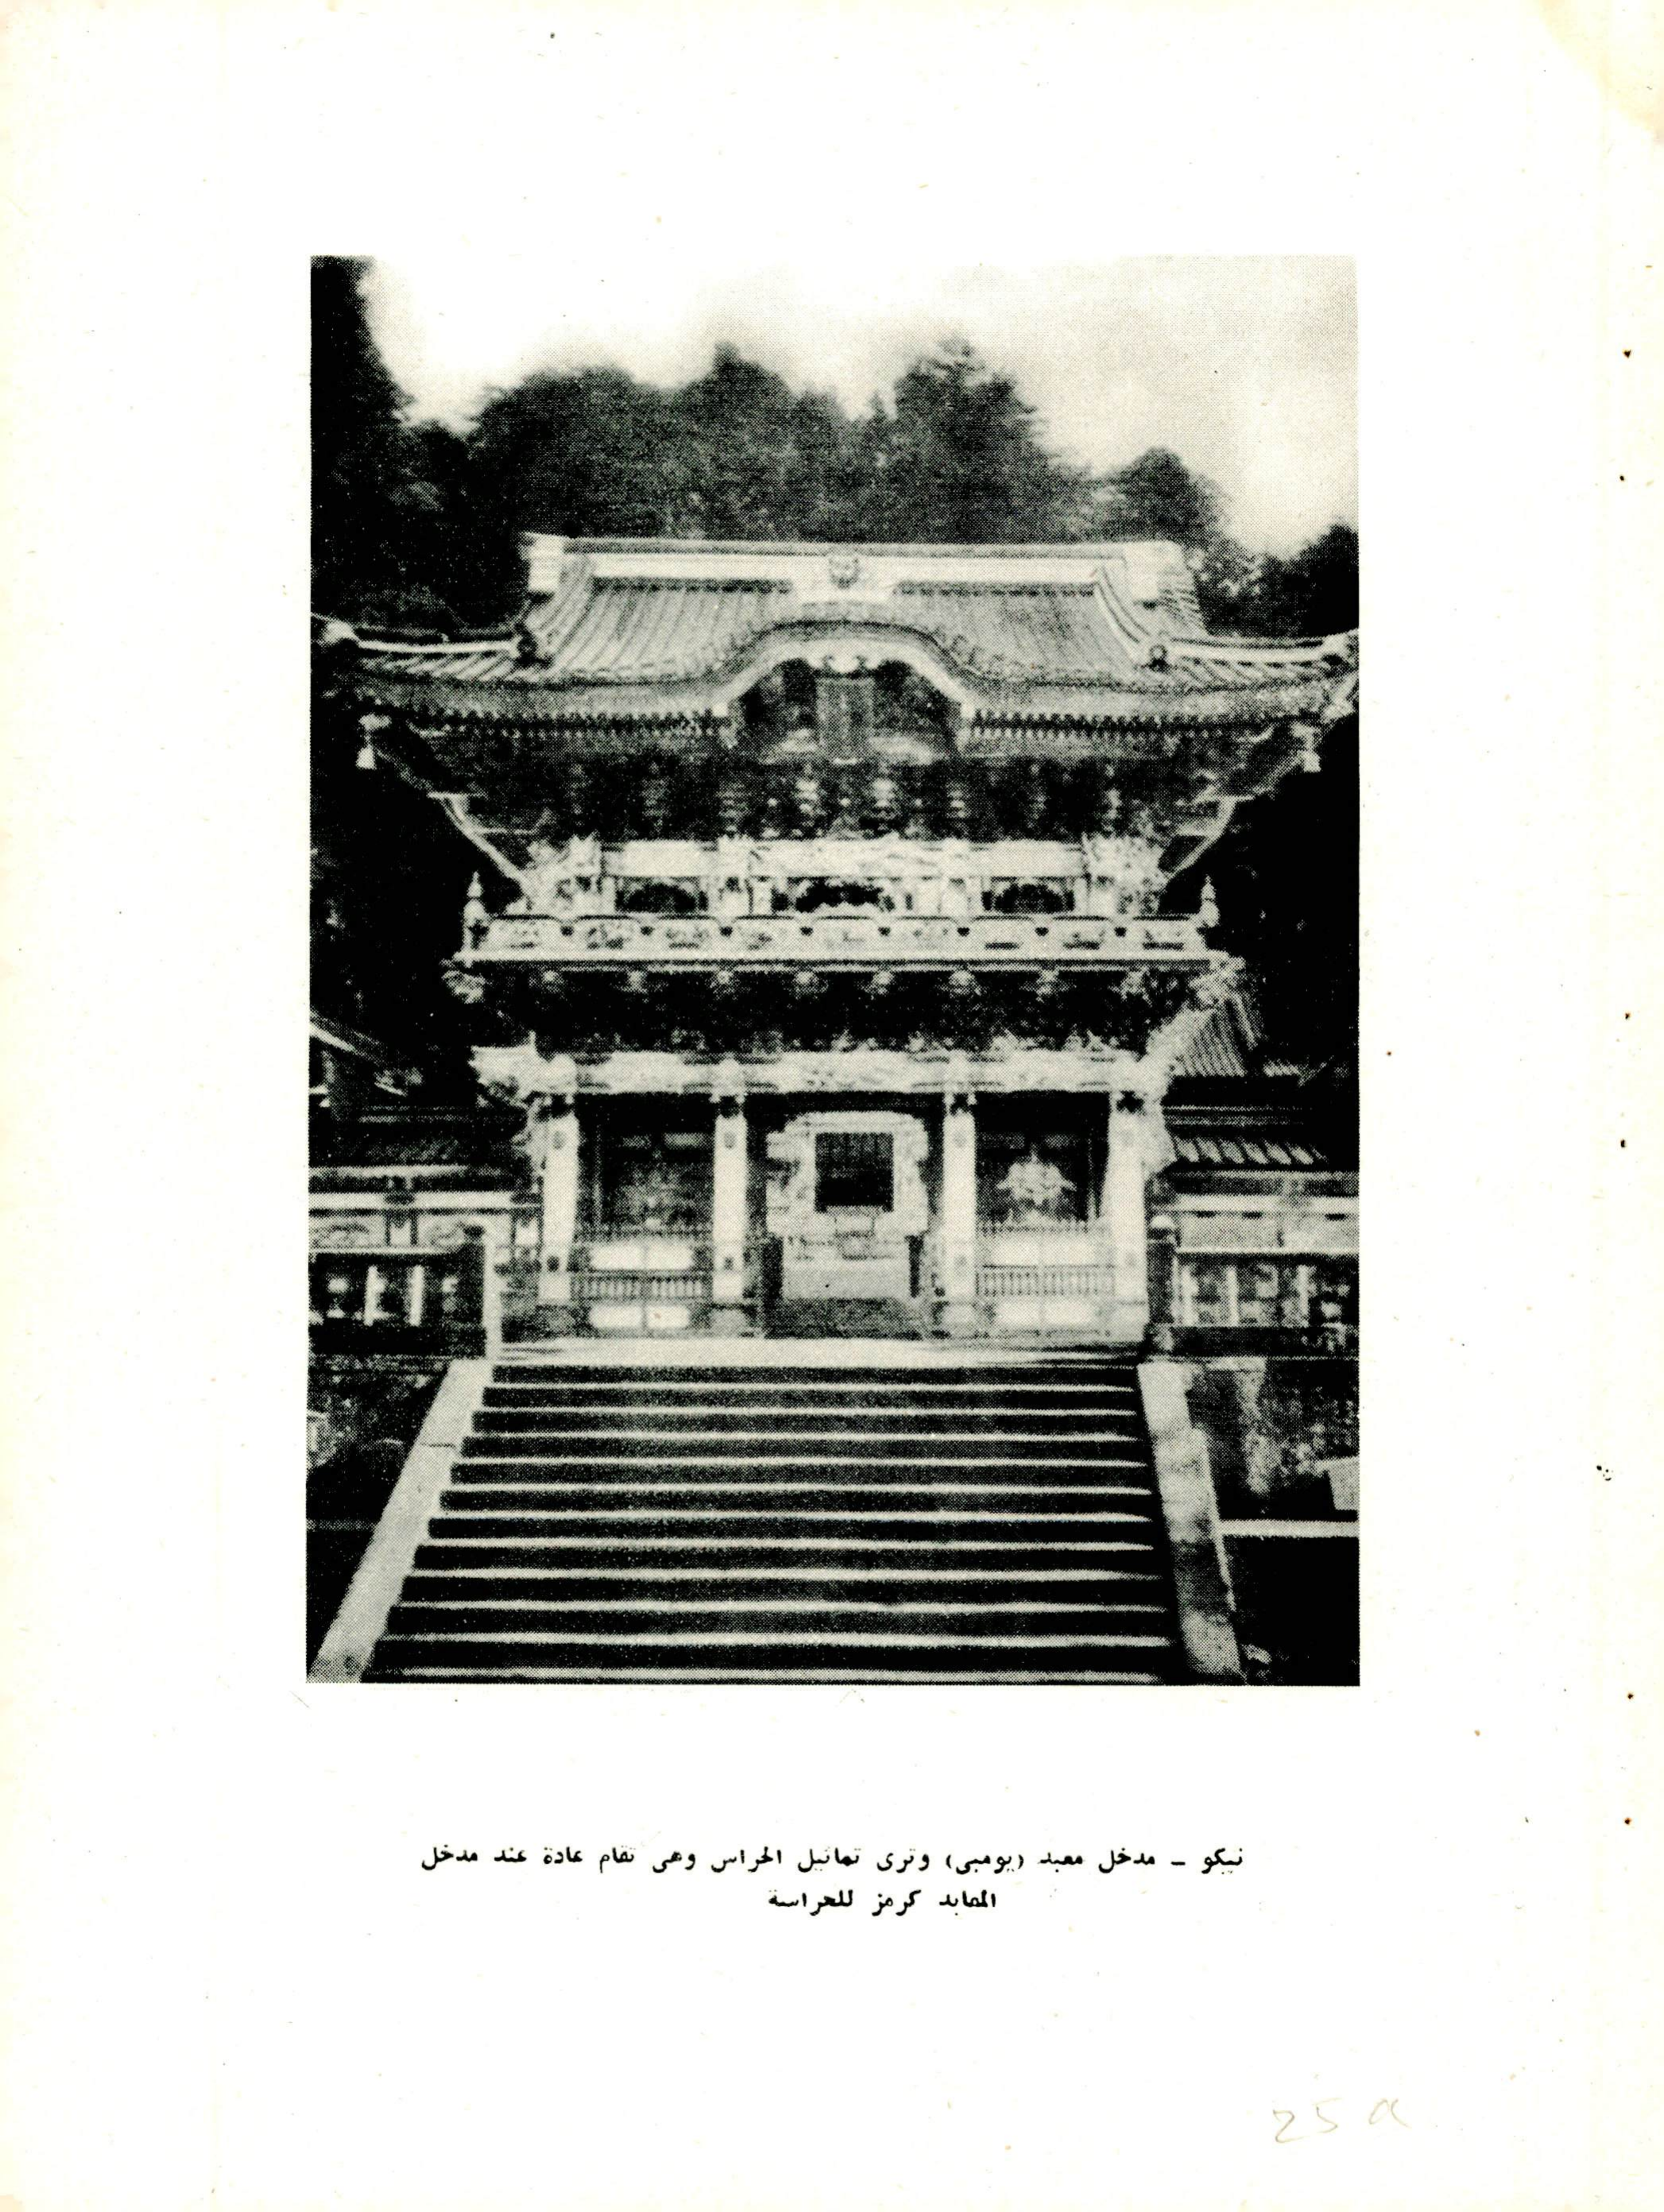 نيكو – مدخل معبد (يومبى) وترى تماثيل الحراس وهى تقام عادة عند مدخل
المعابد كرمز للحراسة
25 a